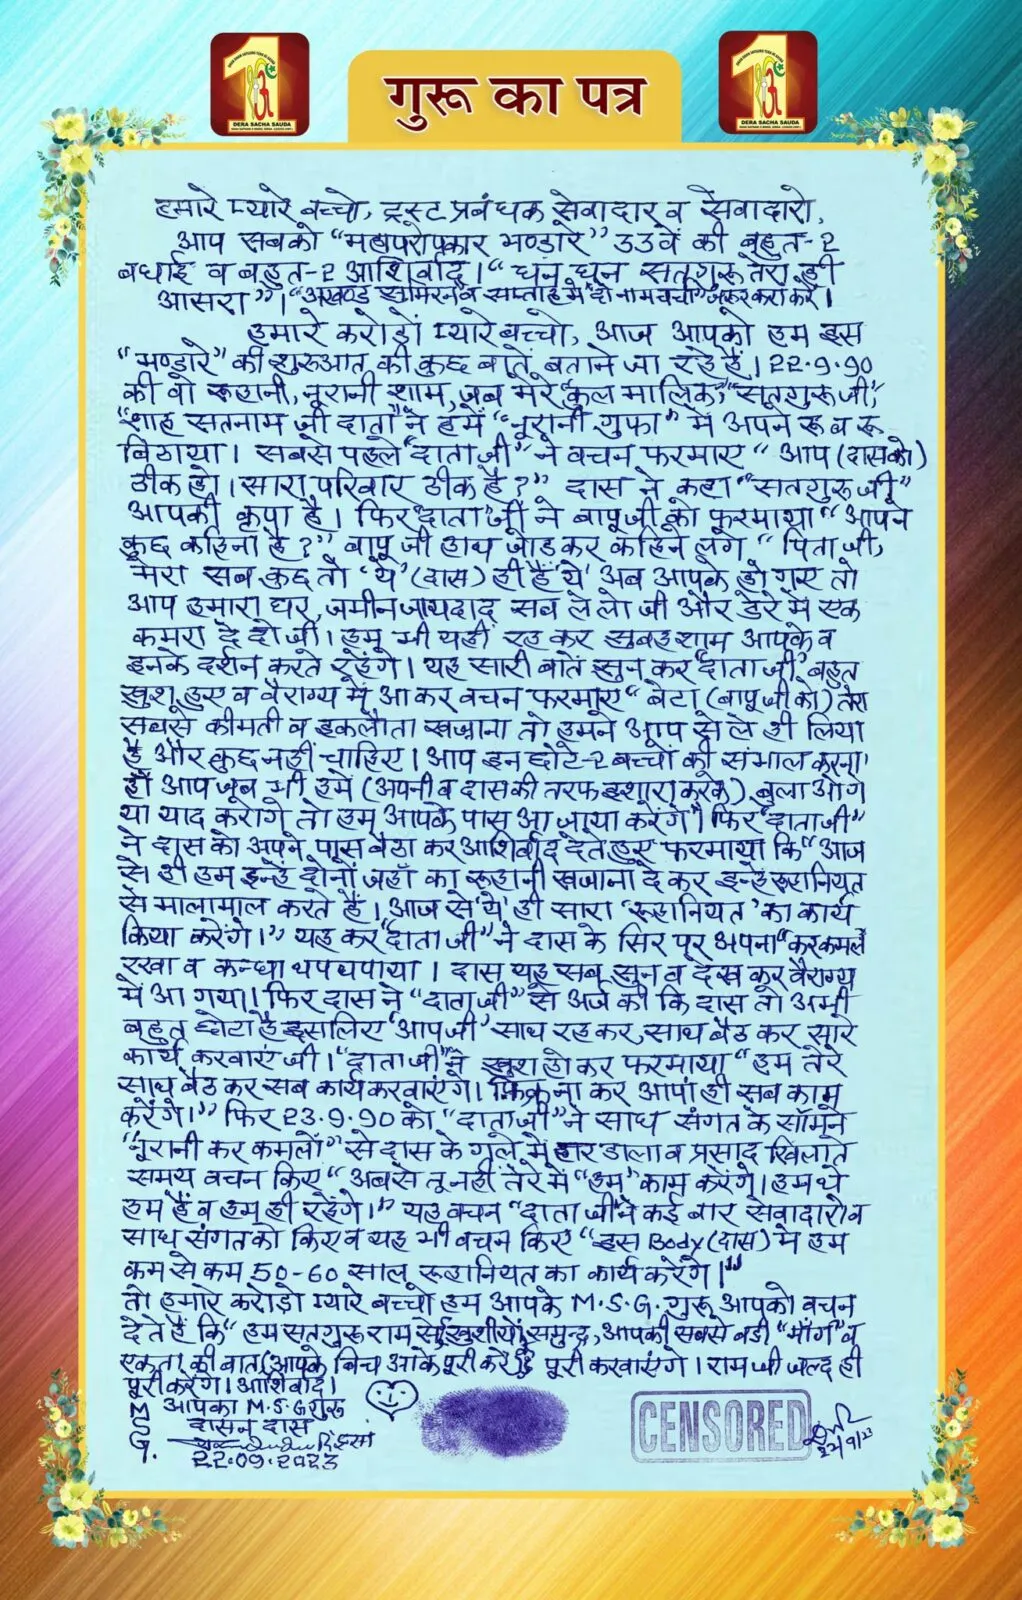 गुरू का पत्र
DERA SACHA SAUDA
DERA SACHA SAUDA
हमारे प्यारे बच्चो, ट्रस्ट प्रबंधक सेवादार व सेवादारो,
आप सबको “महापरोपकार भण्डारे” 33वें की बहुत-2
बधाई व बहुत-2 आशिर्वाद। “धन धन सतगुरू तेरा ही
आसरा”। “अखण्ड सुमिरन व सप्ताह में दो नामचर्चा” जरूर करा करें।
हमारे करोड़ों प्यारे बच्चो, आज आपको हम इस
“भण्डारे” की शुरुआत की कुछ बातें बताने जा रहे हैं। 22.9.90
की वो रूहानी, नूरानी शाम, जब मेरे “कुल मालिक”, “सतगुरू जी”,
“शाह सतनाम जी दाता” ने हमें “नूरानी गुफा” में अपने रू ब रू
बिठाया। सबसे पहले “दाता जी” ने वचन फरमाए “आप (दास को)
ठीक हो। सारा परिवार ठीक है?” दास ने कहा “सतगुरू जी”
आपकी कृपा है। फिर “दाता जी” ने बापू जी को फरमाया “आपने
कुछ कहिना है?” बापू जी हाथ जोड़ कर कहिने लगे “पिता जी,
मेरा सब कुछ तो ‘ये’ (दास) ही हैं ‘ये’ अब आपके हो गए तो
आप हमारा घर, जमीन जायदाद सब ले लो जी और डेरे में एक
कमरा दे दो जी। हम भी यहीं रह कर सुबह शाम आपके व
इनके दर्शन करते रहेंगे। यह सारी बातें सुन कर “दाता जी” बहुत
खुश हुए व वैराग्य में आ कर वचन फरमाए “बेटा (बापू जी को) तेरा
सबसे कीमती व इकलौता खजाना तो हमने आप से ले ही लिया
है और कुछ नहीं चाहिए। आप इन छोटे-2 बच्चों की संभाल करना
हाँ आप जब भी हमें (अपनी व दास की तरफ इशारा करके) बुलाओगे
या याद करोगे तो हम आपके पास आ जाया करेंगे”। फिर “दाता जी”
ने दास को अपने पास बैठा कर आशिर्वाद देते हुए फरमाया कि “आज
से ही हम इन्हें दोनों जहाँ का रूहानी खजाना दे कर इन्हें रूहानियत
से मालामाल करते हैं। आज से ‘ये’ ही सारा ‘रूहानियत’ का कार्य
किया करेंगे।” यह कर “दाता जी” ने दास के सिर पर अपना “कर कमल”
रखा व कन्धा थपथपाया। दास यह सब सुन व देख कर वैराग्य
में आ गया। फिर दास ने “दाता जी” से अर्ज की कि दास तो अभी
बहुत छोटा है इसलिए ‘आप जी’ साथ रह कर, साथ बैठ कर सारे
कार्य करवाएं जी। “दाता जी” ने खुश हो कर फरमाया “हम तेरे
साथ बैठ कर सब कार्य करवाएंगे। फिक्र ना कर आपां ही सब काम
करेंगे।” फिर 23.9.90 को “दाता जी” ने साध संगत के सामने
“नूरानी कर कमलों” से दास के गले में हार डाला व प्रसाद खिलाते
समय वचन किए “अब से तू नहीं तेरे में “हम” काम करेंगे। हम थे
हम हैं व हम ही रहेंगे।” यह वचन “दाता जी” ने कई बार सेवादारों व
साध संगत को किए व यह भी वचन किए “इस Body (दास) में हम
कम से कम 50-60 साल रूहानियत का कार्य करेंगे।”
तो हमारे करोड़ो प्यारे बच्चो हम आपके M.S.G. गुरू आपको वचन
देते हैं कि “हम सतगुरू राम से, खुशीयों के समुन्द्र, आपकी सबसे बड़ी “माँग” व
एकता की बात (आपके बिच आके पूरी करें) पूरी करवाएंगे। राम जी जल्द ही
पूरी करेंगे। आशिर्वाद।
M आपका M.S.G गुरू
S दासन दास
G.
22.09.2023
CENSORED
22/9/23